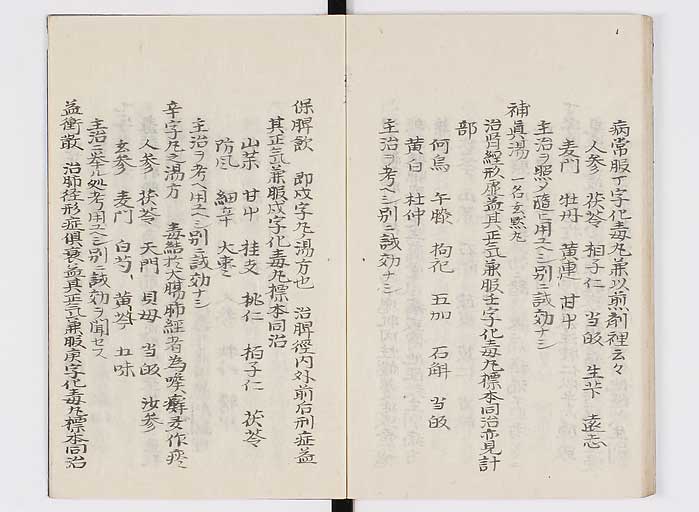 病常服丁字化毒丸兼以煎剤裡云々
人参 茯苓 相子仁 当皈 生芐 遠志
麦門 牡丹 黄連 甘中
主治ヲ照シ随ニ用ユベシ別ニ誠効ナシ
補眞湯 一名玄黙丸
治肾經形虚益其正气兼服壬字化毒丸標本同治亦見計
部
何烏 午膝 枸杞 五加 石斛 当皈
黄白 杜仲
主治ヲ考ベシ別ニ誠効ナシ
保脾飲 即戊字丸湯方也 治脾徑内外前后刑症益
其正气兼服戊字化毒丸標本同治
山茱 甘中 桂支 桃仁 栢子仁 茯苓
防风 細辛 大枣
主治ヲ考ヘ用ユベシ別ニ誠効ナシ
辛字丸之湯方 毒結於大腸肺經者為喉癬及作疼
人参 茯苓 天門 貝母 当皈 沙参
玄参 麦門 白芍 黄芩 五味
主治ニ挙ル処考用ユベシ別ニ誠効ヲ聞セス
益衛散 治肺徑形症俱衰益其正气兼服庚字化毒丸標本同治